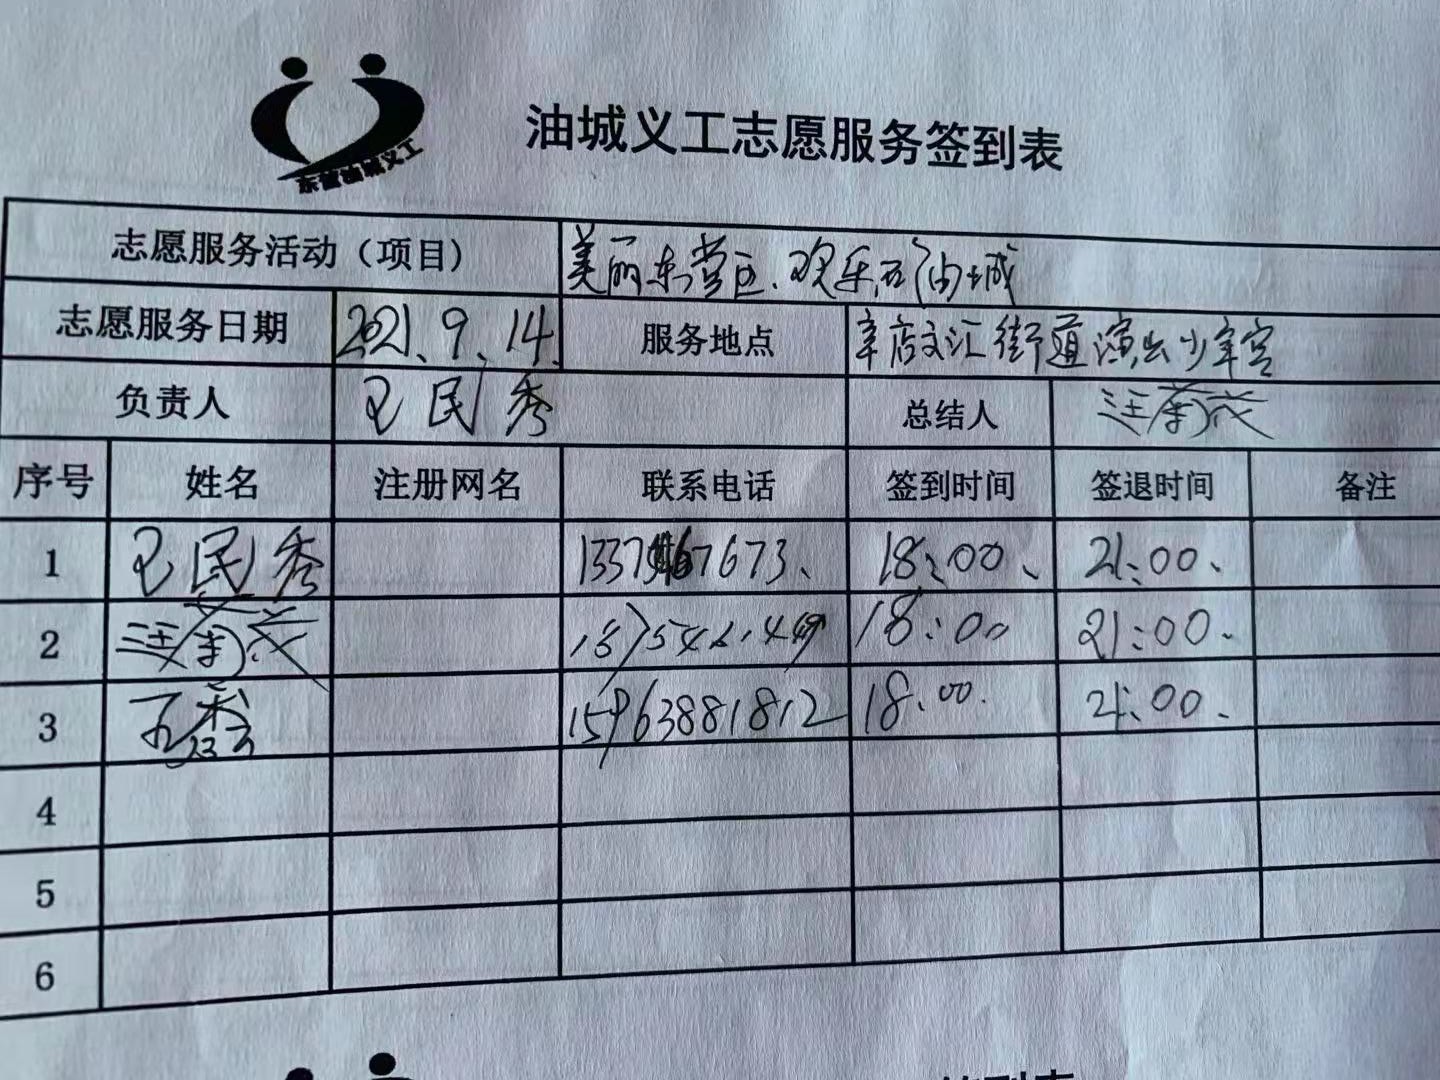 东营油城义工
油城义工志愿服务签到表
志愿服务活动（项目） 美丽东营区、欢乐在油城
志愿服务日期 2021、9、14、 服务地点 辛店文汇街道演出少年宫
负责人 王民秀 总结人 汪
序号 姓名 注册网名 联系电话 签到时间 签退时间 备注
1 王民秀 18:00、 21:00、
2 汪 18:00 21:00、
3 15963881812 18:00. 21:00、
4
5
6